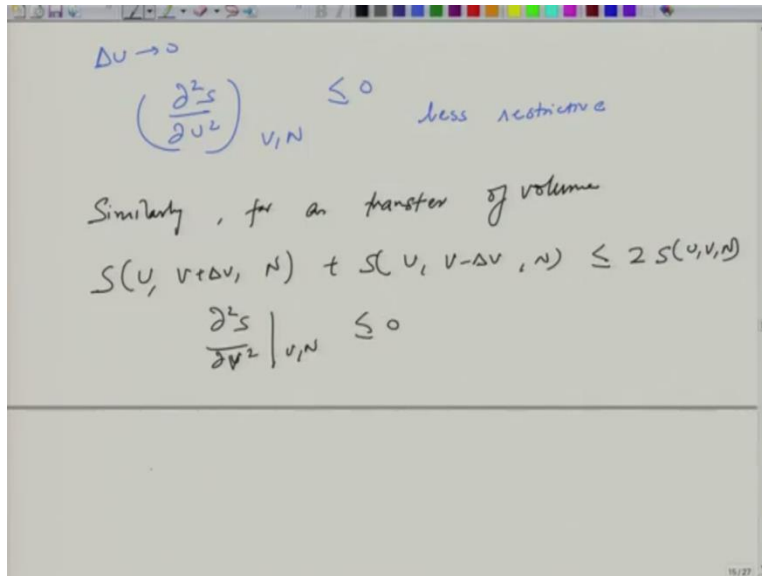 ΔU → 0
(∂²S/∂U²)_V,N ≤ 0 less restrictive
Similarly, for an transfer of volume
S(U, V+ΔV, N) + S(U, V-ΔV, N) ≤ 2 S(U,V,N)
∂²S/∂V² |_U,N ≤ 0
15/27